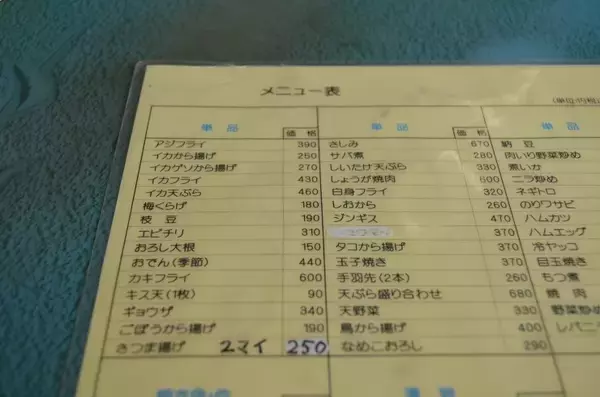 メニュー表
(単位:円税込
単品 価格 単品 価格 単品
アジフライ 390 さしみ 670 納豆
イカから揚げ 250 サバ煮 280 肉いり野菜炒め
イカゲソから揚げ 270 しいたけ天ぷら 330 煮いか
イカフライ 430 しょうが焼肉 600 ニラ炒め
イカ天ぷら 460 白身フライ 320 ネギトロ
梅くらげ 180 しおから 260 のりワサビ
枝豆 190 ジンギス 470 ハムカツ
エビチリ 310 370 ハムエッグ
おろし大根 150 タコから揚げ 370 冷ヤッコ
おでん(季節) 440 玉子焼き 370 目玉焼き
カキフライ 600 手羽先(2本) 260 もつ煮
キス天(1枚) 90 天ぷら盛り合わせ 680 焼肉
ギョウザ 340 天野菜 330 野菜炒め
ごぼうから揚げ 190 鳥から揚げ 400 レバニラ
さつま揚げ 2マイ 250 なめこおろし 290